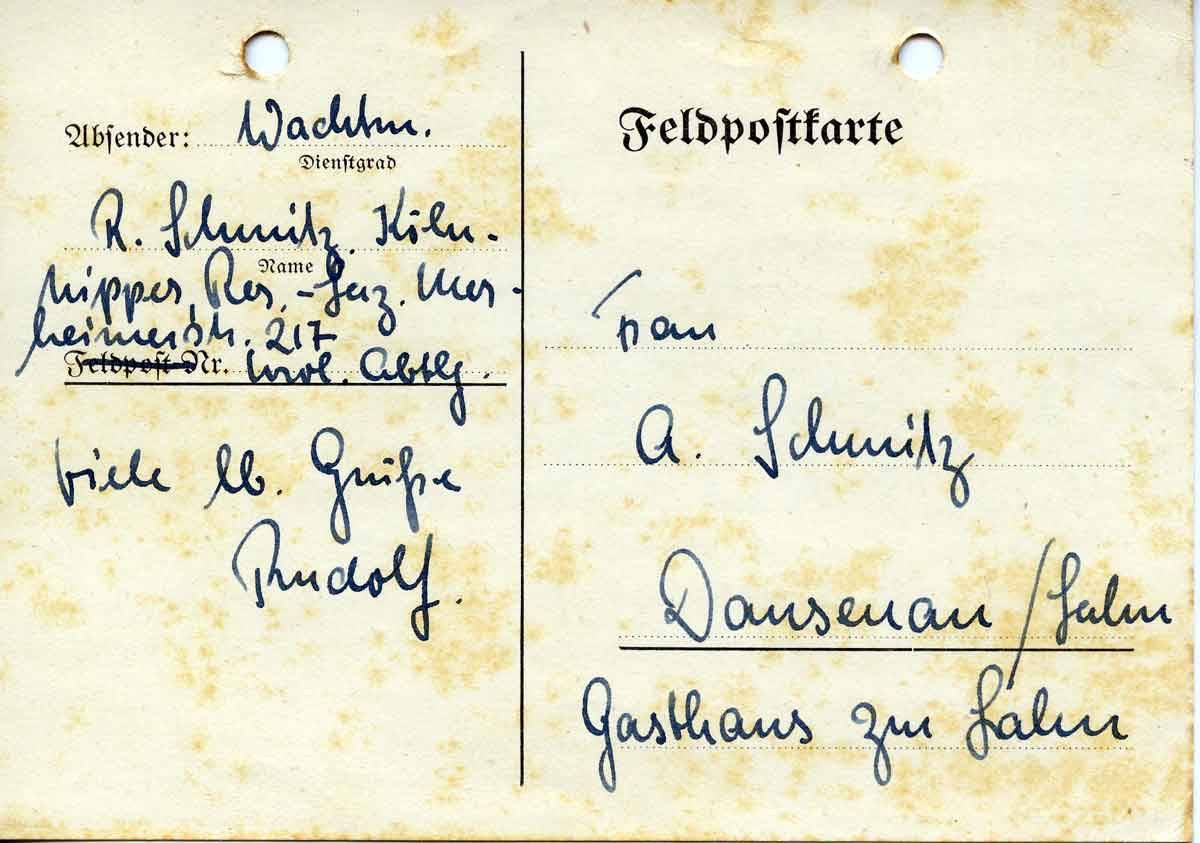 Absender: Wachtm.
Dienstgrad
R. Schmitz, Köln-
Name
Nippes, Res.-Laz. Mer-
heimerstr. 217
Feldpost-Nr. urol. Abtlg.
Viele lb. Grüße
Rudolf.
Feldpostkarte
Frau
A. Schmitz
Dausenau/Lahn
Gasthaus zur Lahn